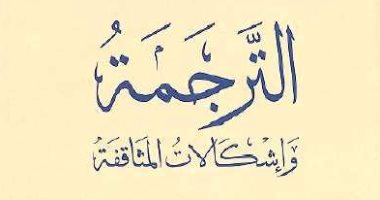 التَّرجَمَةُ
وَإشكَالَاتُ المُثَاقَفَةُ